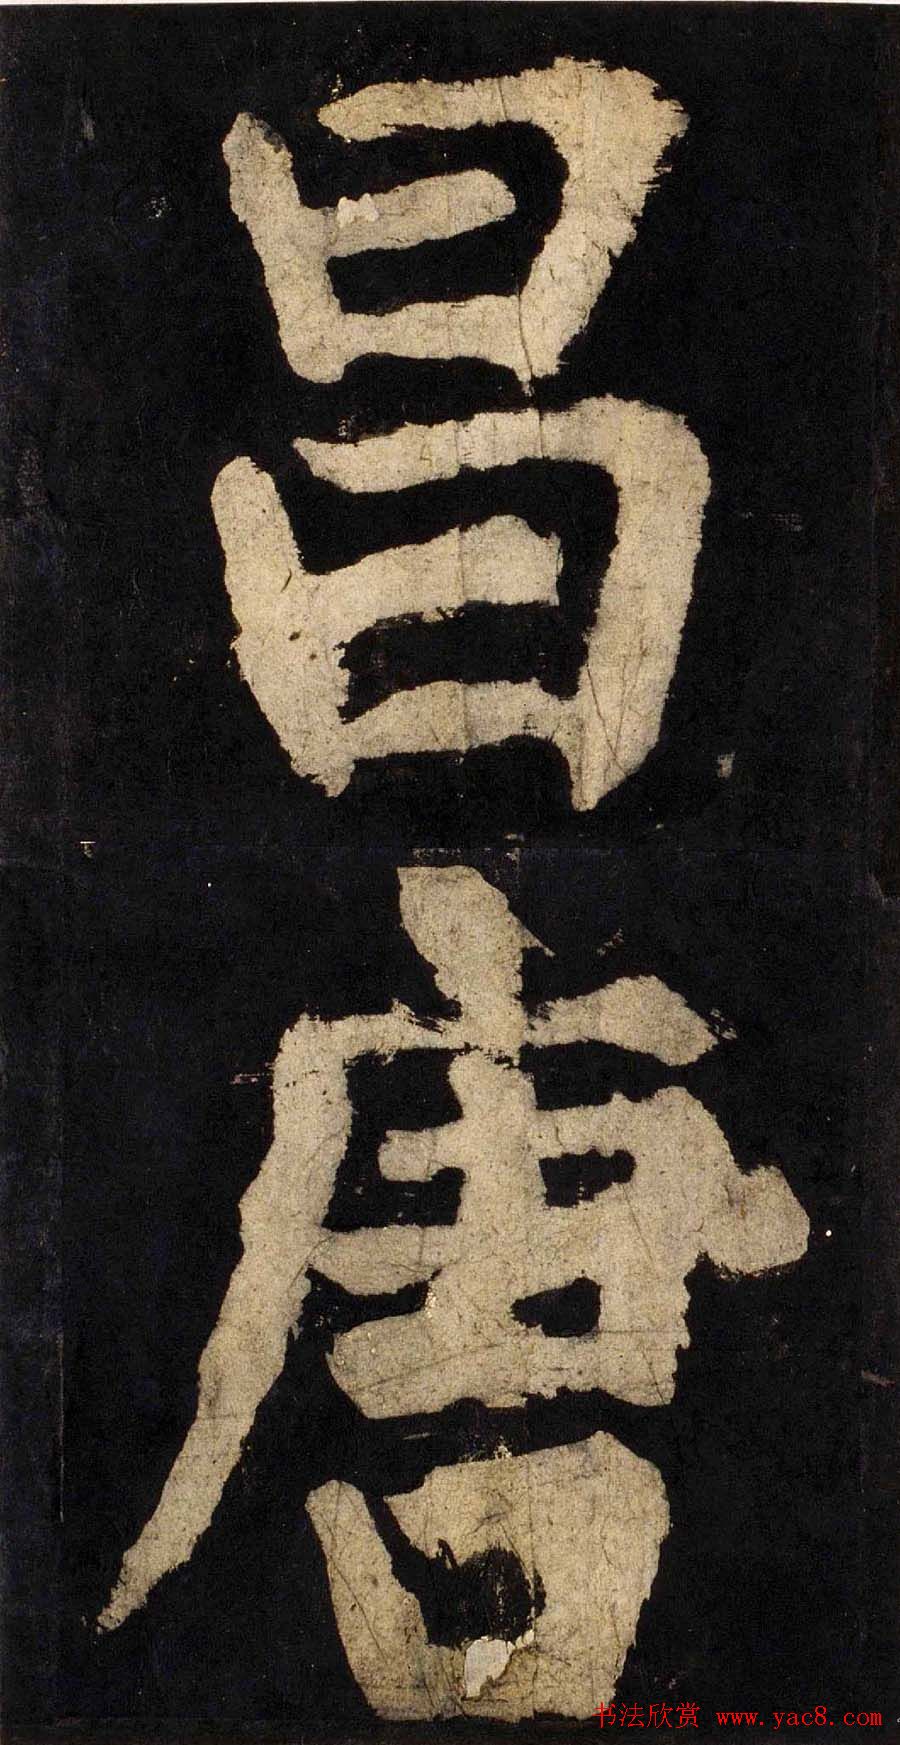 昌
唐
书法欣赏 www.yac8.com